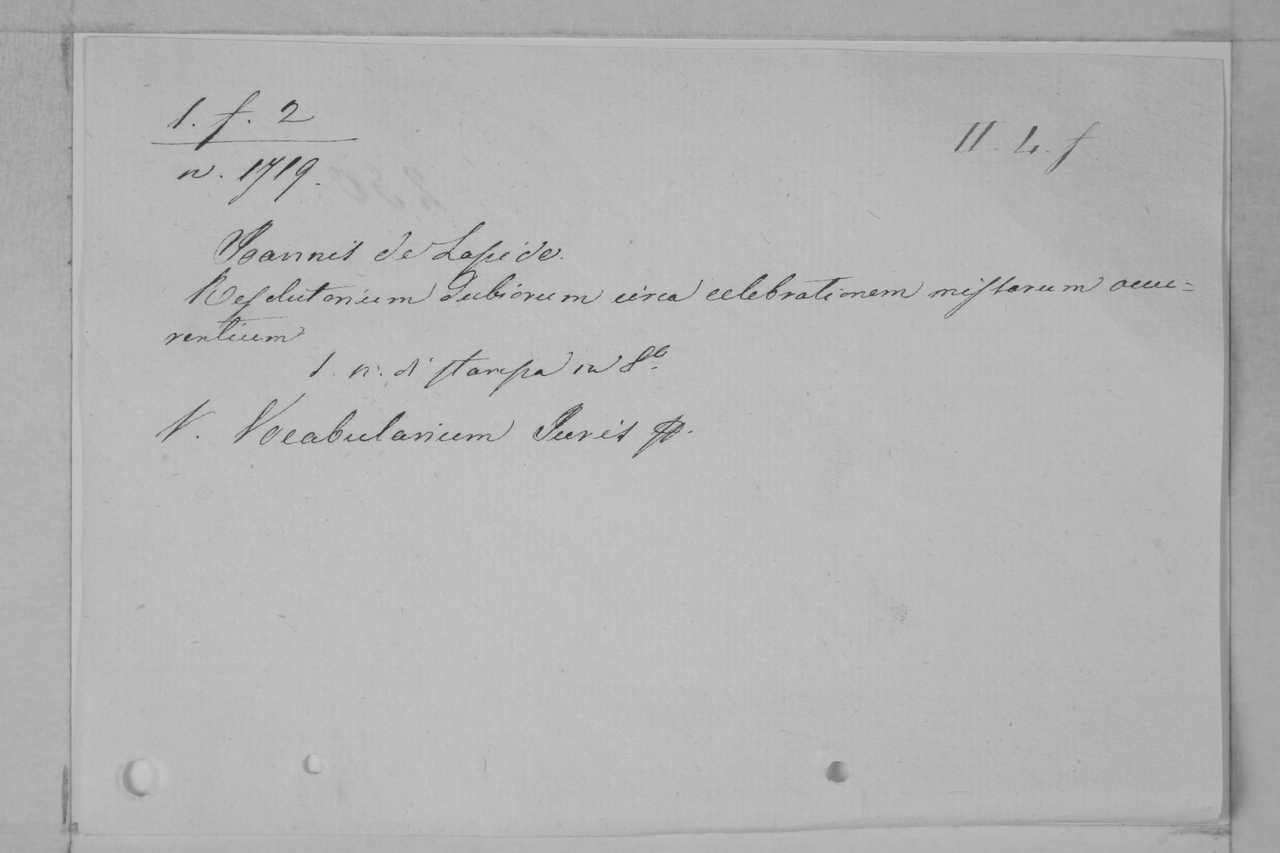 1. f. 2
n. 1719.
II. 4. f
Joannis de Lapide.
Resolutorium Dubiorum circa celebrationem missarum occu=
rentium
s. n. di stampa in 8º
V. Vocabularium Juris